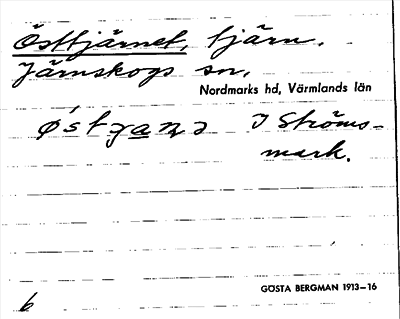 Östtjärnet, tjärn.
Järnskogs sn.
Nordmarks hd, Värmlands län
I Ströms-
mark.
GÖSTA BERGMAN 1913–16
b